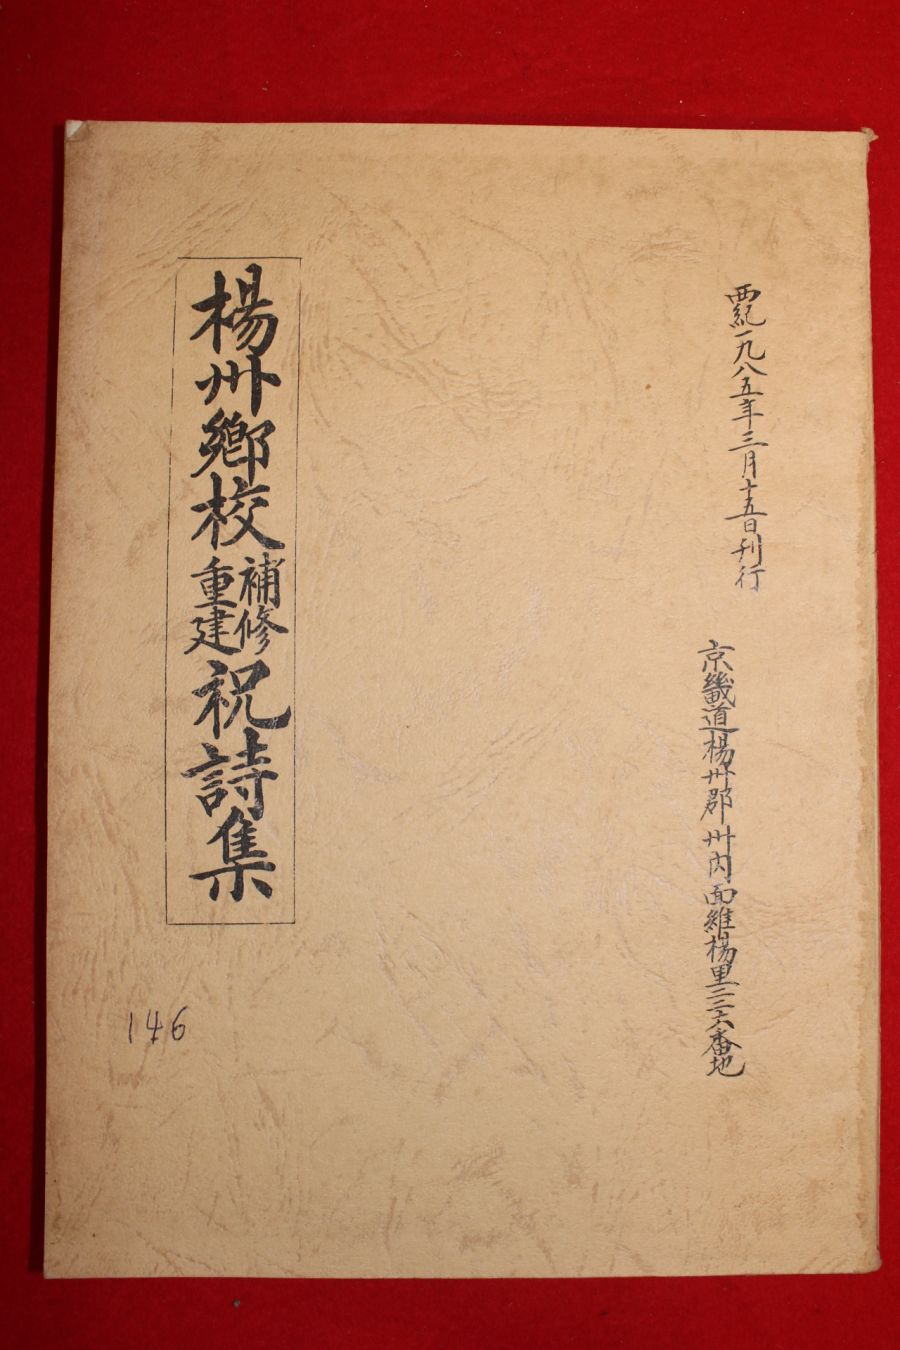 西紀一九八五年三月十五日刊行
京畿道楊州郡州内面維楊里二三六番地
楊州鄉校補修重建祝詩集
146